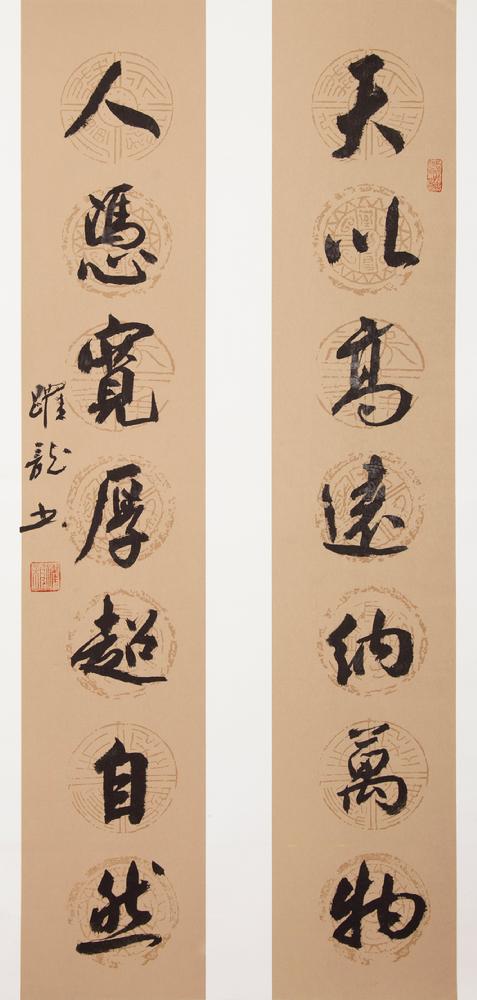 天以高遠納萬物
人憑寬厚超自然
躍龍书